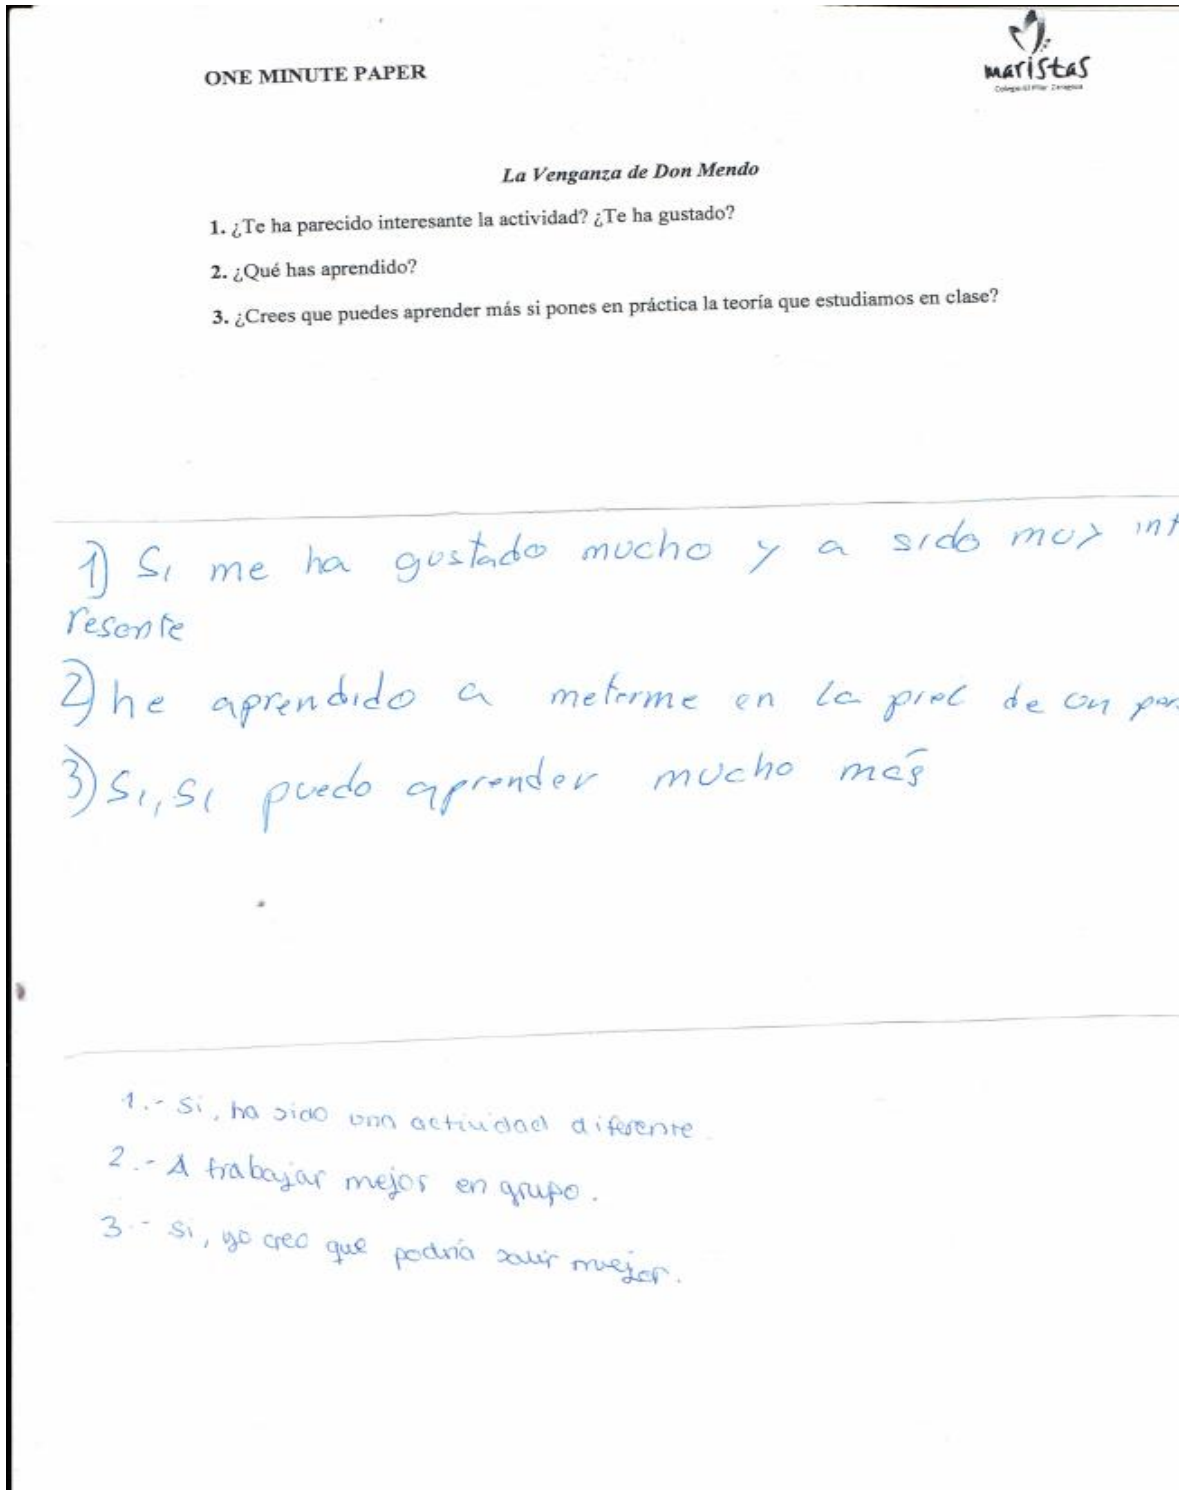 ONE MINUTE PAPER
maristas
La Venganza de Don Mendo
1. ¿Te ha parecido interesante la actividad? ¿Te ha gustado?
2. ¿Qué has aprendido?
3. ¿Crees que puedes aprender más si pones en práctica la teoría que estudiamos en clase?
1) Si me ha gustado mucho y a sido muy int
resante
2) he aprendido a meterme en la piel de un per
3) Si, si puedo aprender mucho más
1.- Si, ha sido una actividad diferente.
2.- A trabajar mejor en grupo.
3.- Si, yo creo que podría salir mejor.